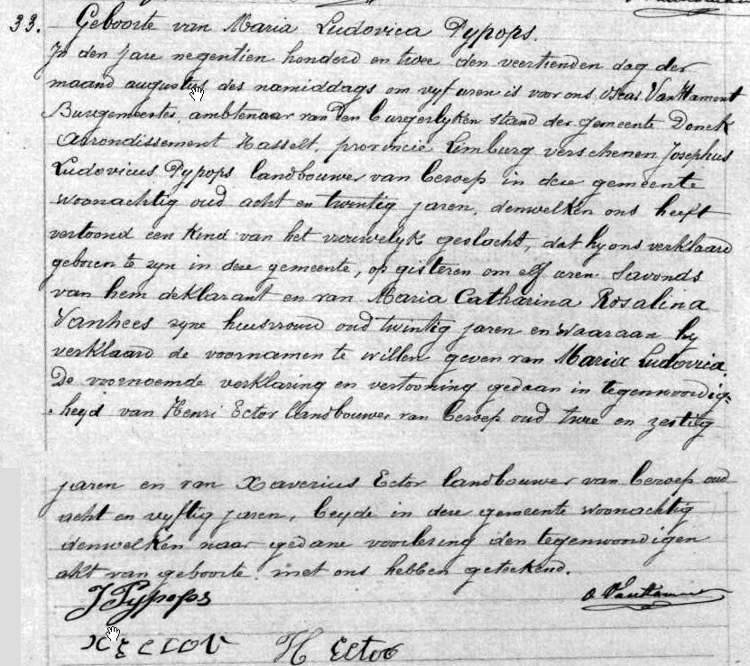 33. Geboorte van Maria Ludovica Pypops.
In den jare negentien honderd en twee den veertienden dag der
maand augustus des namiddags om vyf uren is voor ons Oscar Van Hamont
Burgemeester, ambtenaar van den burgerlyken stand der gemeente Donck
Arrondissement Hasselt, provincie Limburg verschenen Josephus
Ludovicus Pypops landbouwer van beroep in deze gemeente
woonachtig oud acht en twintig jaren, denwelken ons heeft
vertoond een kind van het vrouwelyk geslacht, dat hy ons verklaard
geboren te zyn in deze gemeente, op gisteren om elf uren s'avonds
van hem deklarant en van Maria Catharina Rosalina
Vanhees zyne huisvrouw oud twintig jaren en waaraan hy
verklaard de voornamen te willen geven van Maria Ludovica.
De voornoemde verklaring en vertooning gedaan in tegenwoordig-
heyd van Henri Ector landbouwer van beroep oud twee en zestig
jaren en van Xaverius Ector landbouwer van beroep oud
acht en vyftig jaren, beyde in deze gemeente woonachtig
denwelken naar gedane voorlezing den tegenwoordigen
akt van geboorte met ons hebben geteekend.
J Pypops
X Ector H Ector